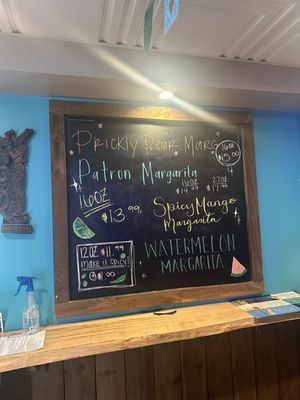 Prickly Pear Marg
16oz
$15.00
Patron Margarita
16OZ
$13.99
16OZ
$14.99
27OZ
$17.99
Spicy Mango
Margarita
12OZ $11.99
Make it Spicy!
$1.00
WATERMELON
MARGARITA